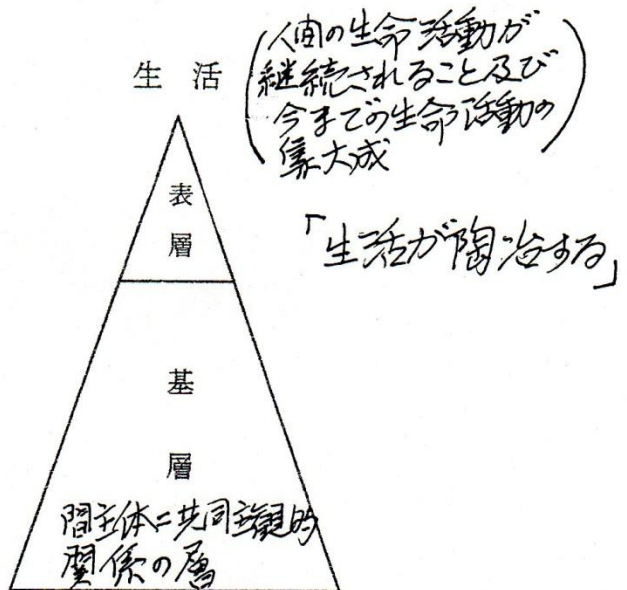 生活
(人間の生命活動が
継続されること及び
今までの生命活動の
集大成)
「生活が陶冶する」
表
層
基
層
間主体=共同主観的
関係の層